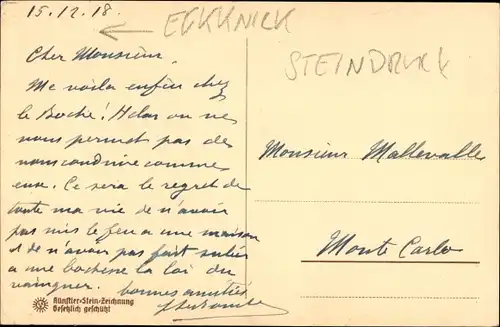 15.12.18.
ECKKNICK
STEINDRUCK
Cher Monsieur,
Me voila enfin chez
le Boche! Helas on ne
nous permet pas de
nous conduire comme
eux. Ce sera le regret de
toute ma vie de n'avoir
pas mis le feu a une maison
et de n'avoir pas fait subir
a une bochesse la loi du
vainqueur.
bonnes amitiés
Monsieur Mallevalle
Monte Carlo
Künstler-Stein-Zeichnung
Gesetzlich geschützt